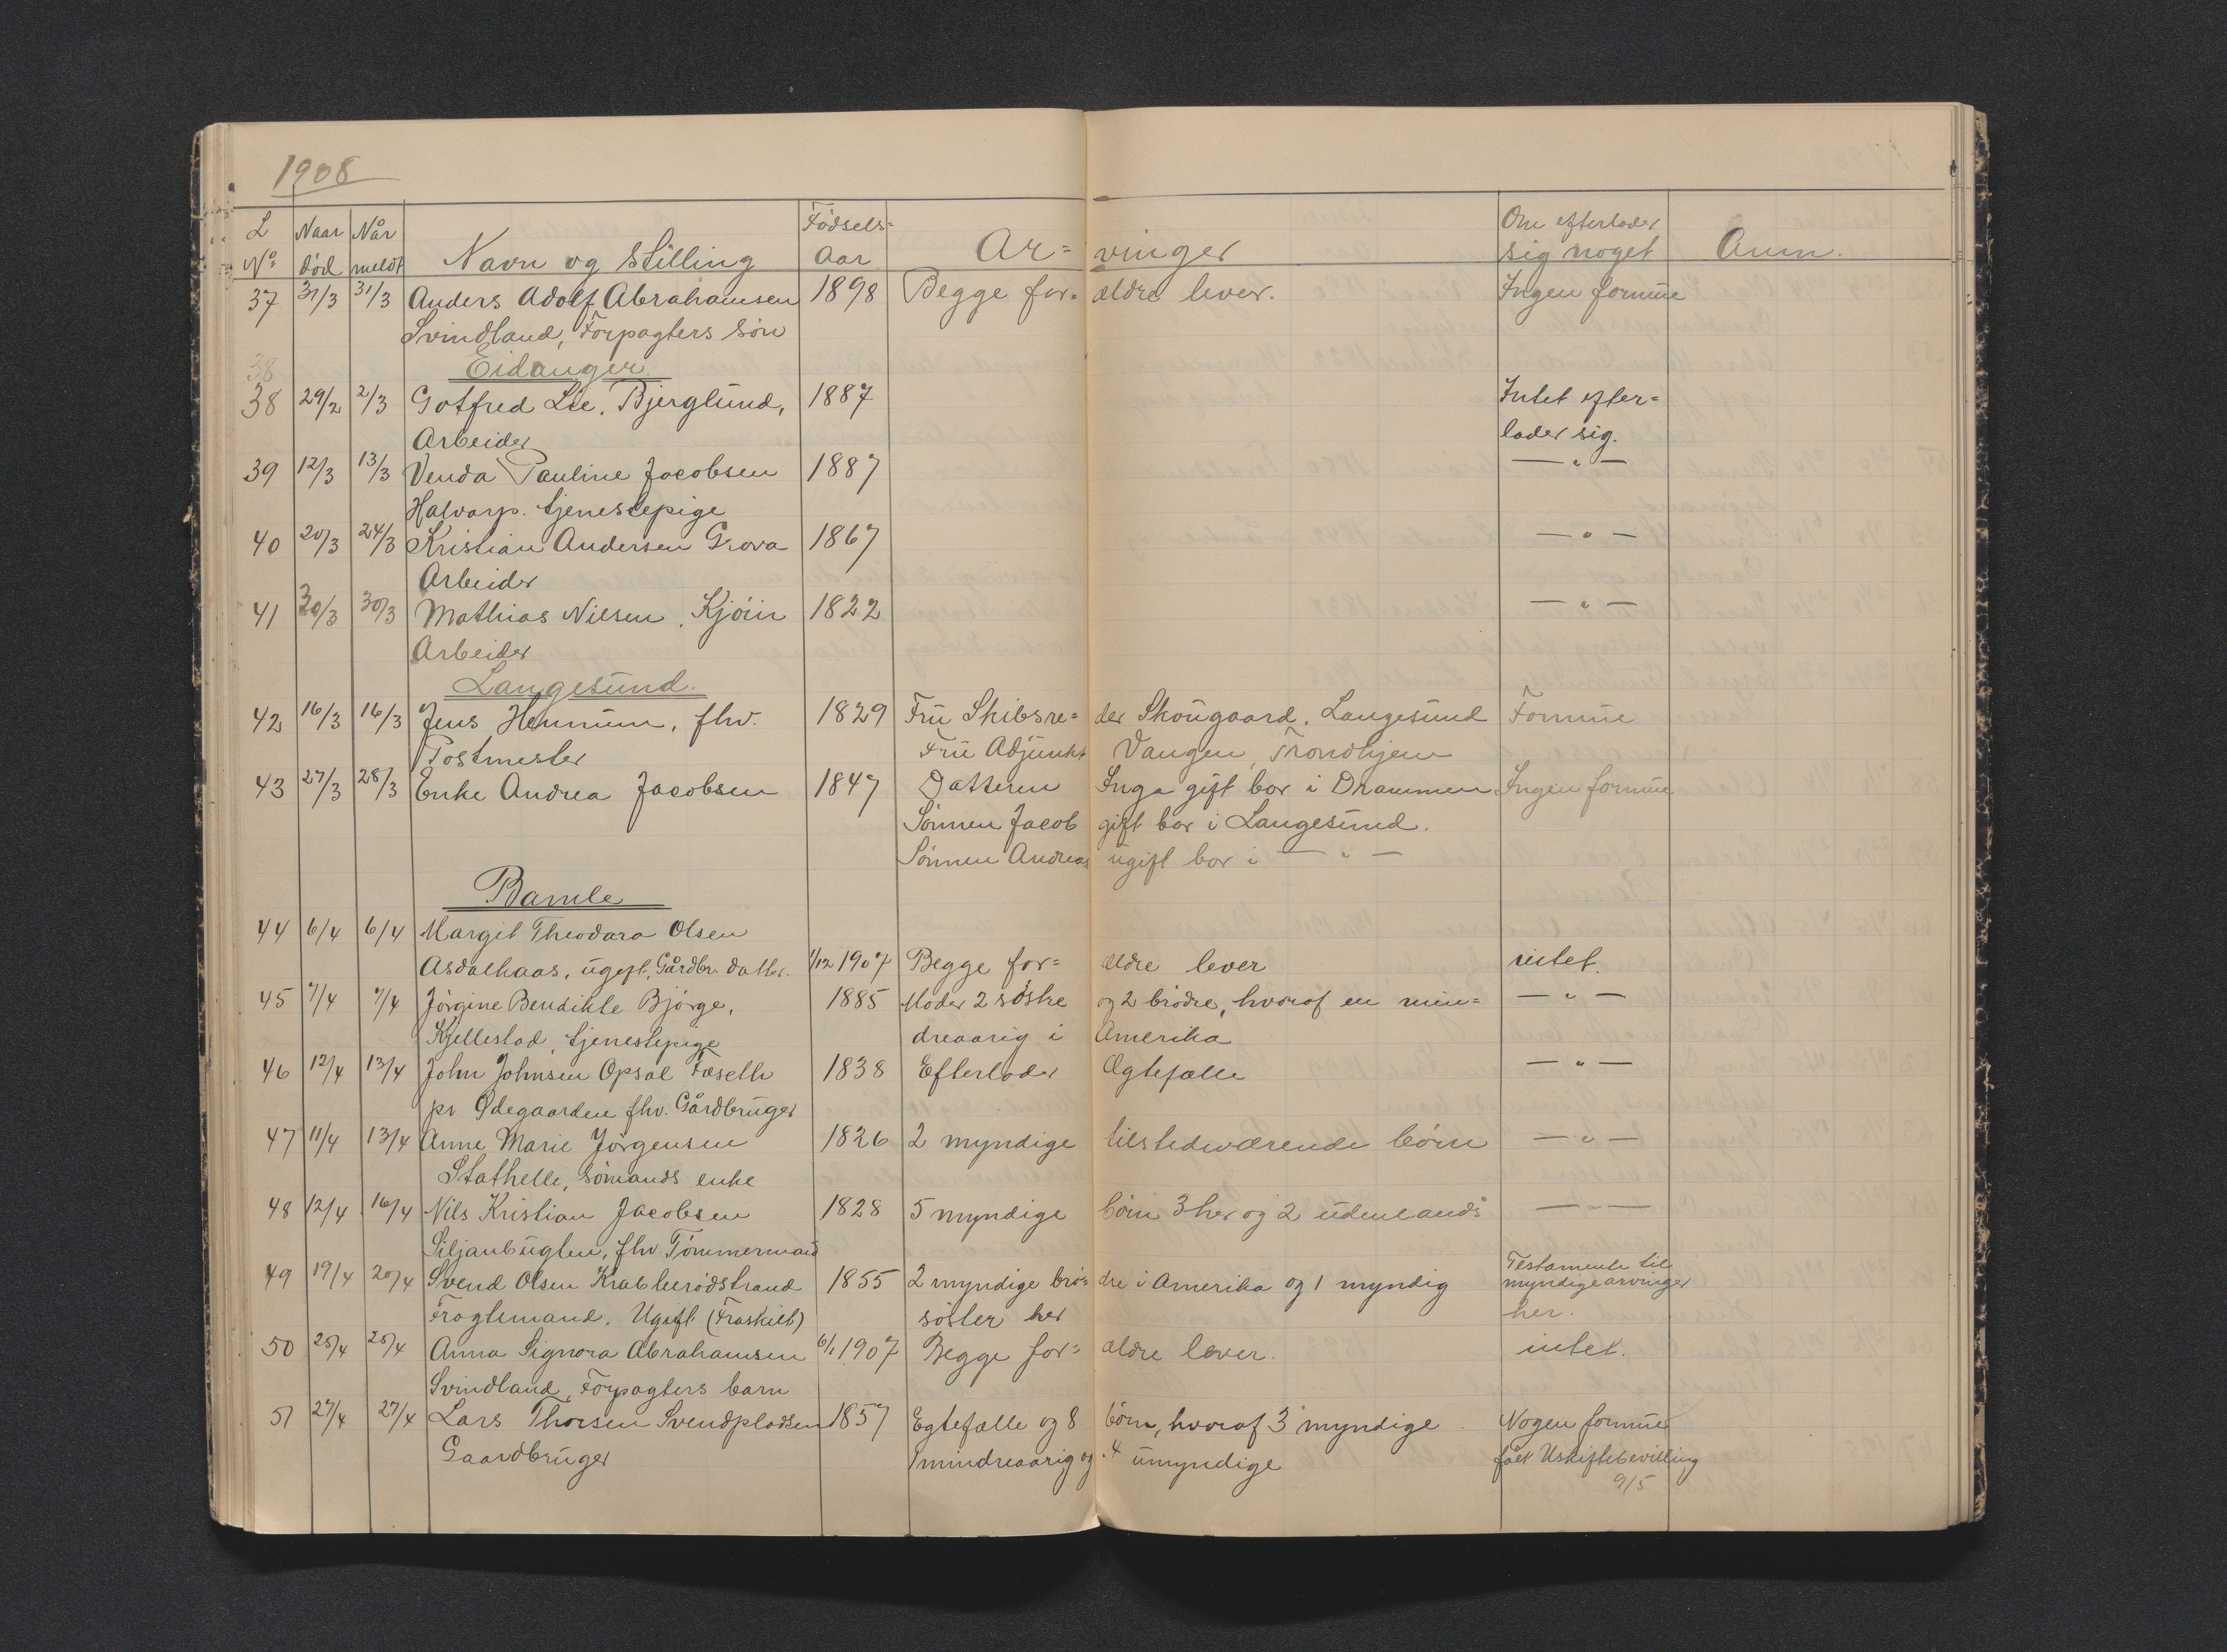 1908
L No Naar død Når meldt Navn og Stilling Fødsels= Aar Ar= vinger Om efterlader sig noget Anm.
37 31/3 31/3 Anders Adolf Abrahamsen 1898 Begge for= ældre lever. Ingen formue
Svindland, Forpagters søn
38 Eidanger.
38 29/2 2/3 Gotfred Lie. Bjerglund, 1887 Intet efter=
Arbeider lader sig.
39 12/3 13/3 Venda Pauline Jacobsen 1887 — " —
Halvarp. tjenestepige
40 20/3 24/3 Kristian Andersen Grova 1867 — " —
Arbeider
41 30/3 30/3 Mathias Nilsen, Kjøin 1822 — " —
Arbeider
Langesund.
42 16/3 16/3 Jens Hennum, fhv. 1829 Fru Skibsre= der Skougaard. Langesund Formue
Postmester Fru Adjunkt Vangen, Trondhjem
43 27/3 28/3 Enke Andrea Jacobsen 1847 Datteren Inga gift bor i Drammen Ingen formue
Sønnen Jacob gift bor i Langesund.
Sønnen Andreas ugift bor i — " —
Bamle
44 6/4 6/4 Margit Theodara Olsen
Asdalhaas, ugift, Gårdbr. datter. 1/12 1907 Begge for= ældre lever intet.
45 7/4 7/4 Jørgine Bendikte Bjørge, 1885 Moder 2 søstre og 2 brødre, hvoraf en min= — " —
Kjellestad, tjenestepige dreaarig i Amerika
46 12/4 13/4 John Johnsen Opsal Føseth 1838 Efterlader Ægtefælle — " —
pr Ødegaarden fhv. Gårdbruger
47 11/4 13/4 Anne Marie Jørgensen 1826 2 myndige tilstedeværende børn — " —
Stathelle, sømands enke
48 12/4 16/4 Nils Kristian Jacobsen 1828 5 myndige børn 3 her og 2 udenlands — " —
Siljanbugten, fhv Tømmermand
49 19/4 20/4 Svend Olsen Krabberødstrand 1855 2 myndige brø= dre i Amerika og 1 myndig Testamente til myndige arvinger
Fragtemand. Ugift (Fraskilt) søster her her.
50 25/4 25/4 Anna Signora Abrahamsen 6/1 1907 Begge for= ældre lever. intet.
Svindland, Forpagters barn
51 27/4 27/4 Lars Thorsen Svendpladsen 1857 Egtefælle og 8 børn, hvoraf 3 myndige Nogen formue
Gaardbruger 1 mindreaarig og 4 umyndige fået Uskiftebevilling
9/5